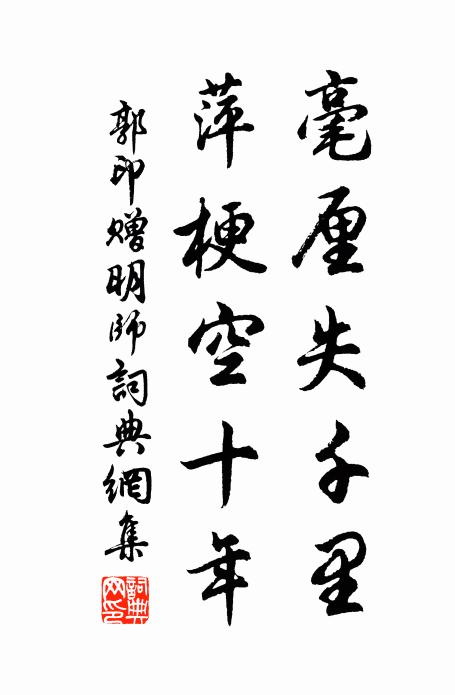 毫厘失千里
萍梗空十年
郭印赠明师詞典網集
詞典网印